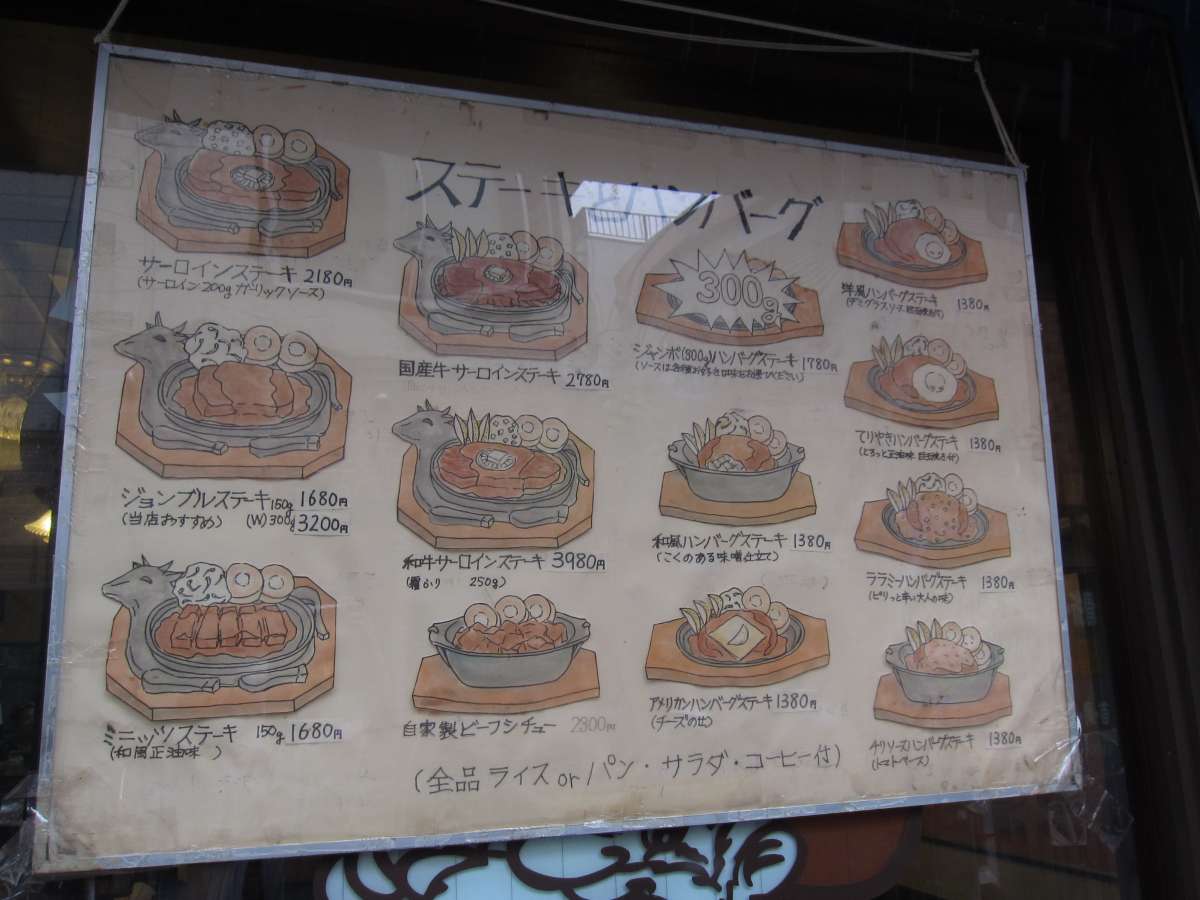 ステーキとハンバーグ
サーロインステーキ 2180円
(サーロイン200g ガーリックソース)
ジョンブルステーキ 150g 1680円
(当店おすすめ) (W)300g 3200円
ミニッツステーキ 150g 1680円
(和風正油味)
国産牛サーロインステーキ 2780円
和牛サーロインステーキ 3980円
(霜ふり 250g)
自家製ビーフシチュー 2300円
300g
ジャンボ(300g)ハンバーグステーキ 1780円
(ソースは各種お好きな味をお選びください)
和風ハンバーグステーキ 1380円
(こくのある味噌仕立て)
アメリカンハンバーグステーキ 1380円
(チーズのせ)
洋風ハンバーグステーキ 1380円
(デミグラスソース 目玉焼き付)
てりやきハンバーグステーキ 1380円
(とろっと正油味 目玉焼き付)
ララミーハンバーグステーキ 1380円
(ピリっと辛い大人の味)
チリソースハンバーグステーキ 1380円
(トマトベース)
(全品ライスorパン・サラダ・コーヒー付)